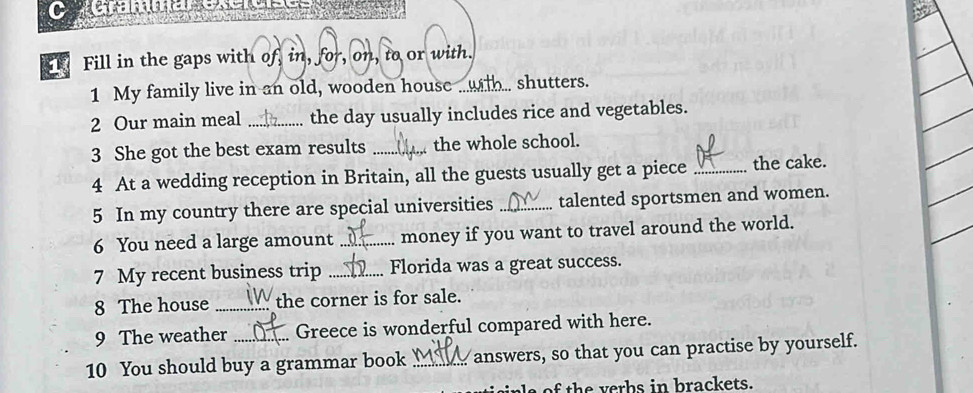 C Grammar exercises
1 Fill in the gaps with of, in, for, on, to or with.
1 My family live in an old, wooden house ...with... shutters.
2 Our main meal ....to....... the day usually includes rice and vegetables.
3 She got the best exam results ............ the whole school.
4 At a wedding reception in Britain, all the guests usually get a piece of the cake.
5 In my country there are special universities on talented sportsmen and women.
6 You need a large amount of money if you want to travel around the world.
7 My recent business trip to Florida was a great success.
8 The house in the corner is for sale.
9 The weather of Greece is wonderful compared with here.
10 You should buy a grammar book with answers, so that you can practise by yourself.
of the verbs in brackets.